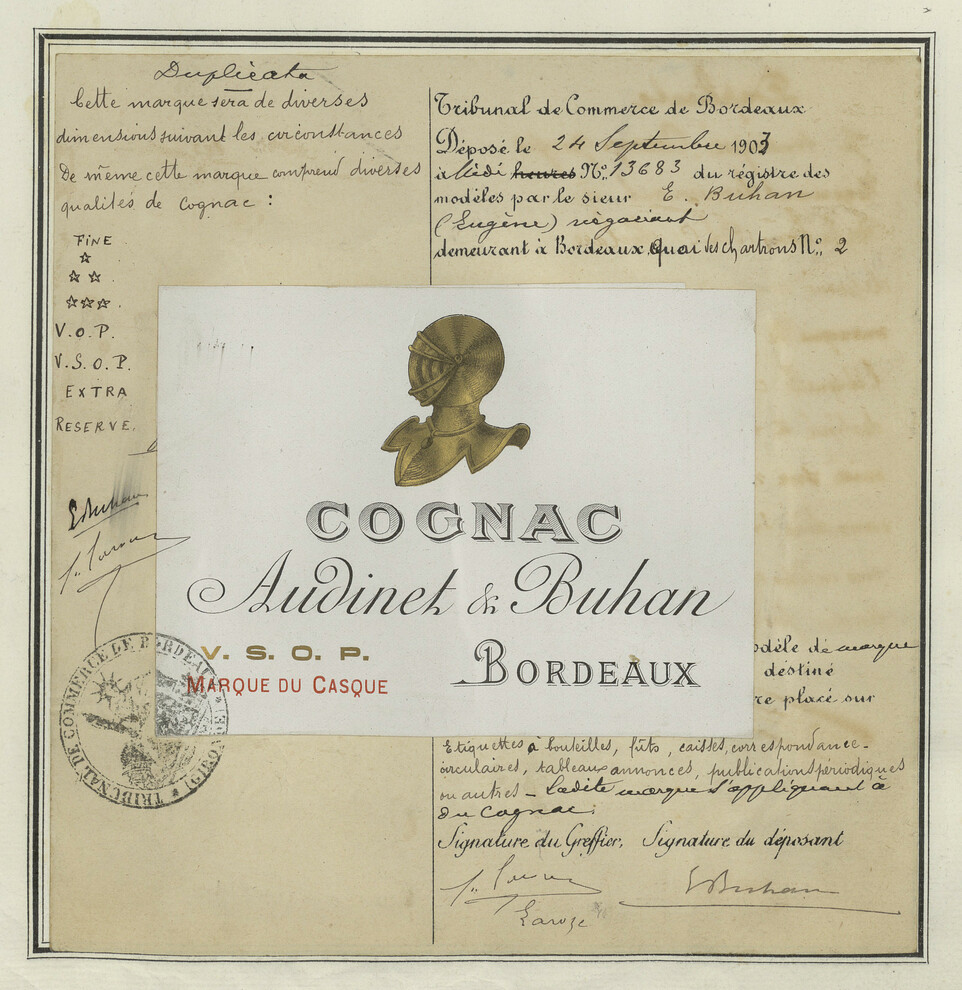 Duplicata
Cette marque sera de diverses
dimensions suivant les circonstances
De même cette marque comprend diverses
qualités de cognac :
FINE
V.O.P.
V.S.O.P.
EXTRA
RESERVE.
EBuhan
Tribunal de Commerce de Bordeaux
Déposé le 24 Septembre 1903
à Midi heures No. 13683 du régistre des
modèles par le sieur E. Buhan
(Eugène) négociant
demeurant à Bordeaux, Quai des Chartrons No. 2
COGNAC
Audinet & Buhan
V. S. O. P.
BORDEAUX
MARQUE DU CASQUE
TRIBUNAL DE COMMERCE DE BORDEAU
odèle de marque
déstiné
re placé sur
Etiquettes à bouteilles, fûts, caisses, correspondance_
circulaires, tableaux annonces, publications périodiques
ou autres _ Ladite marque s'appliquant à
du Cognac.
Signature du Greffier, Signature du déposant
EBuhan
Laroze